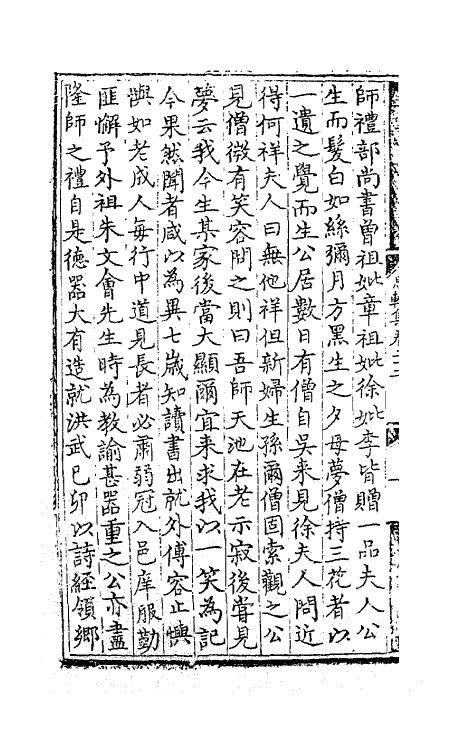 師禮部尚書曽祖妣章祖妣徐妣李皆贈一品夫人公
生而髮白如絲彌月方黒生之夕母夢僧持三花者以
一遺之覺而生公居數日有僧自吳来見徐夫人問近
得何祥夫人曰無他祥但新婦生孫爾僧固索觀之公
見僧微有笑容問之則曰吾師天池在老示寂後嘗見
夢云我今生某家後當大顯爾宜来求我以一笑為記
今果然聞者咸以為異七歳知讀書出就外傅容止懊
㦛如老成人每行中道見長者必肅弱冠入邑庠服勤
匪懈予外祖朱文會先生時為教諭甚器重之公亦盡
隆師之禮自是德器大有造就洪武已卯以詩經領鄉